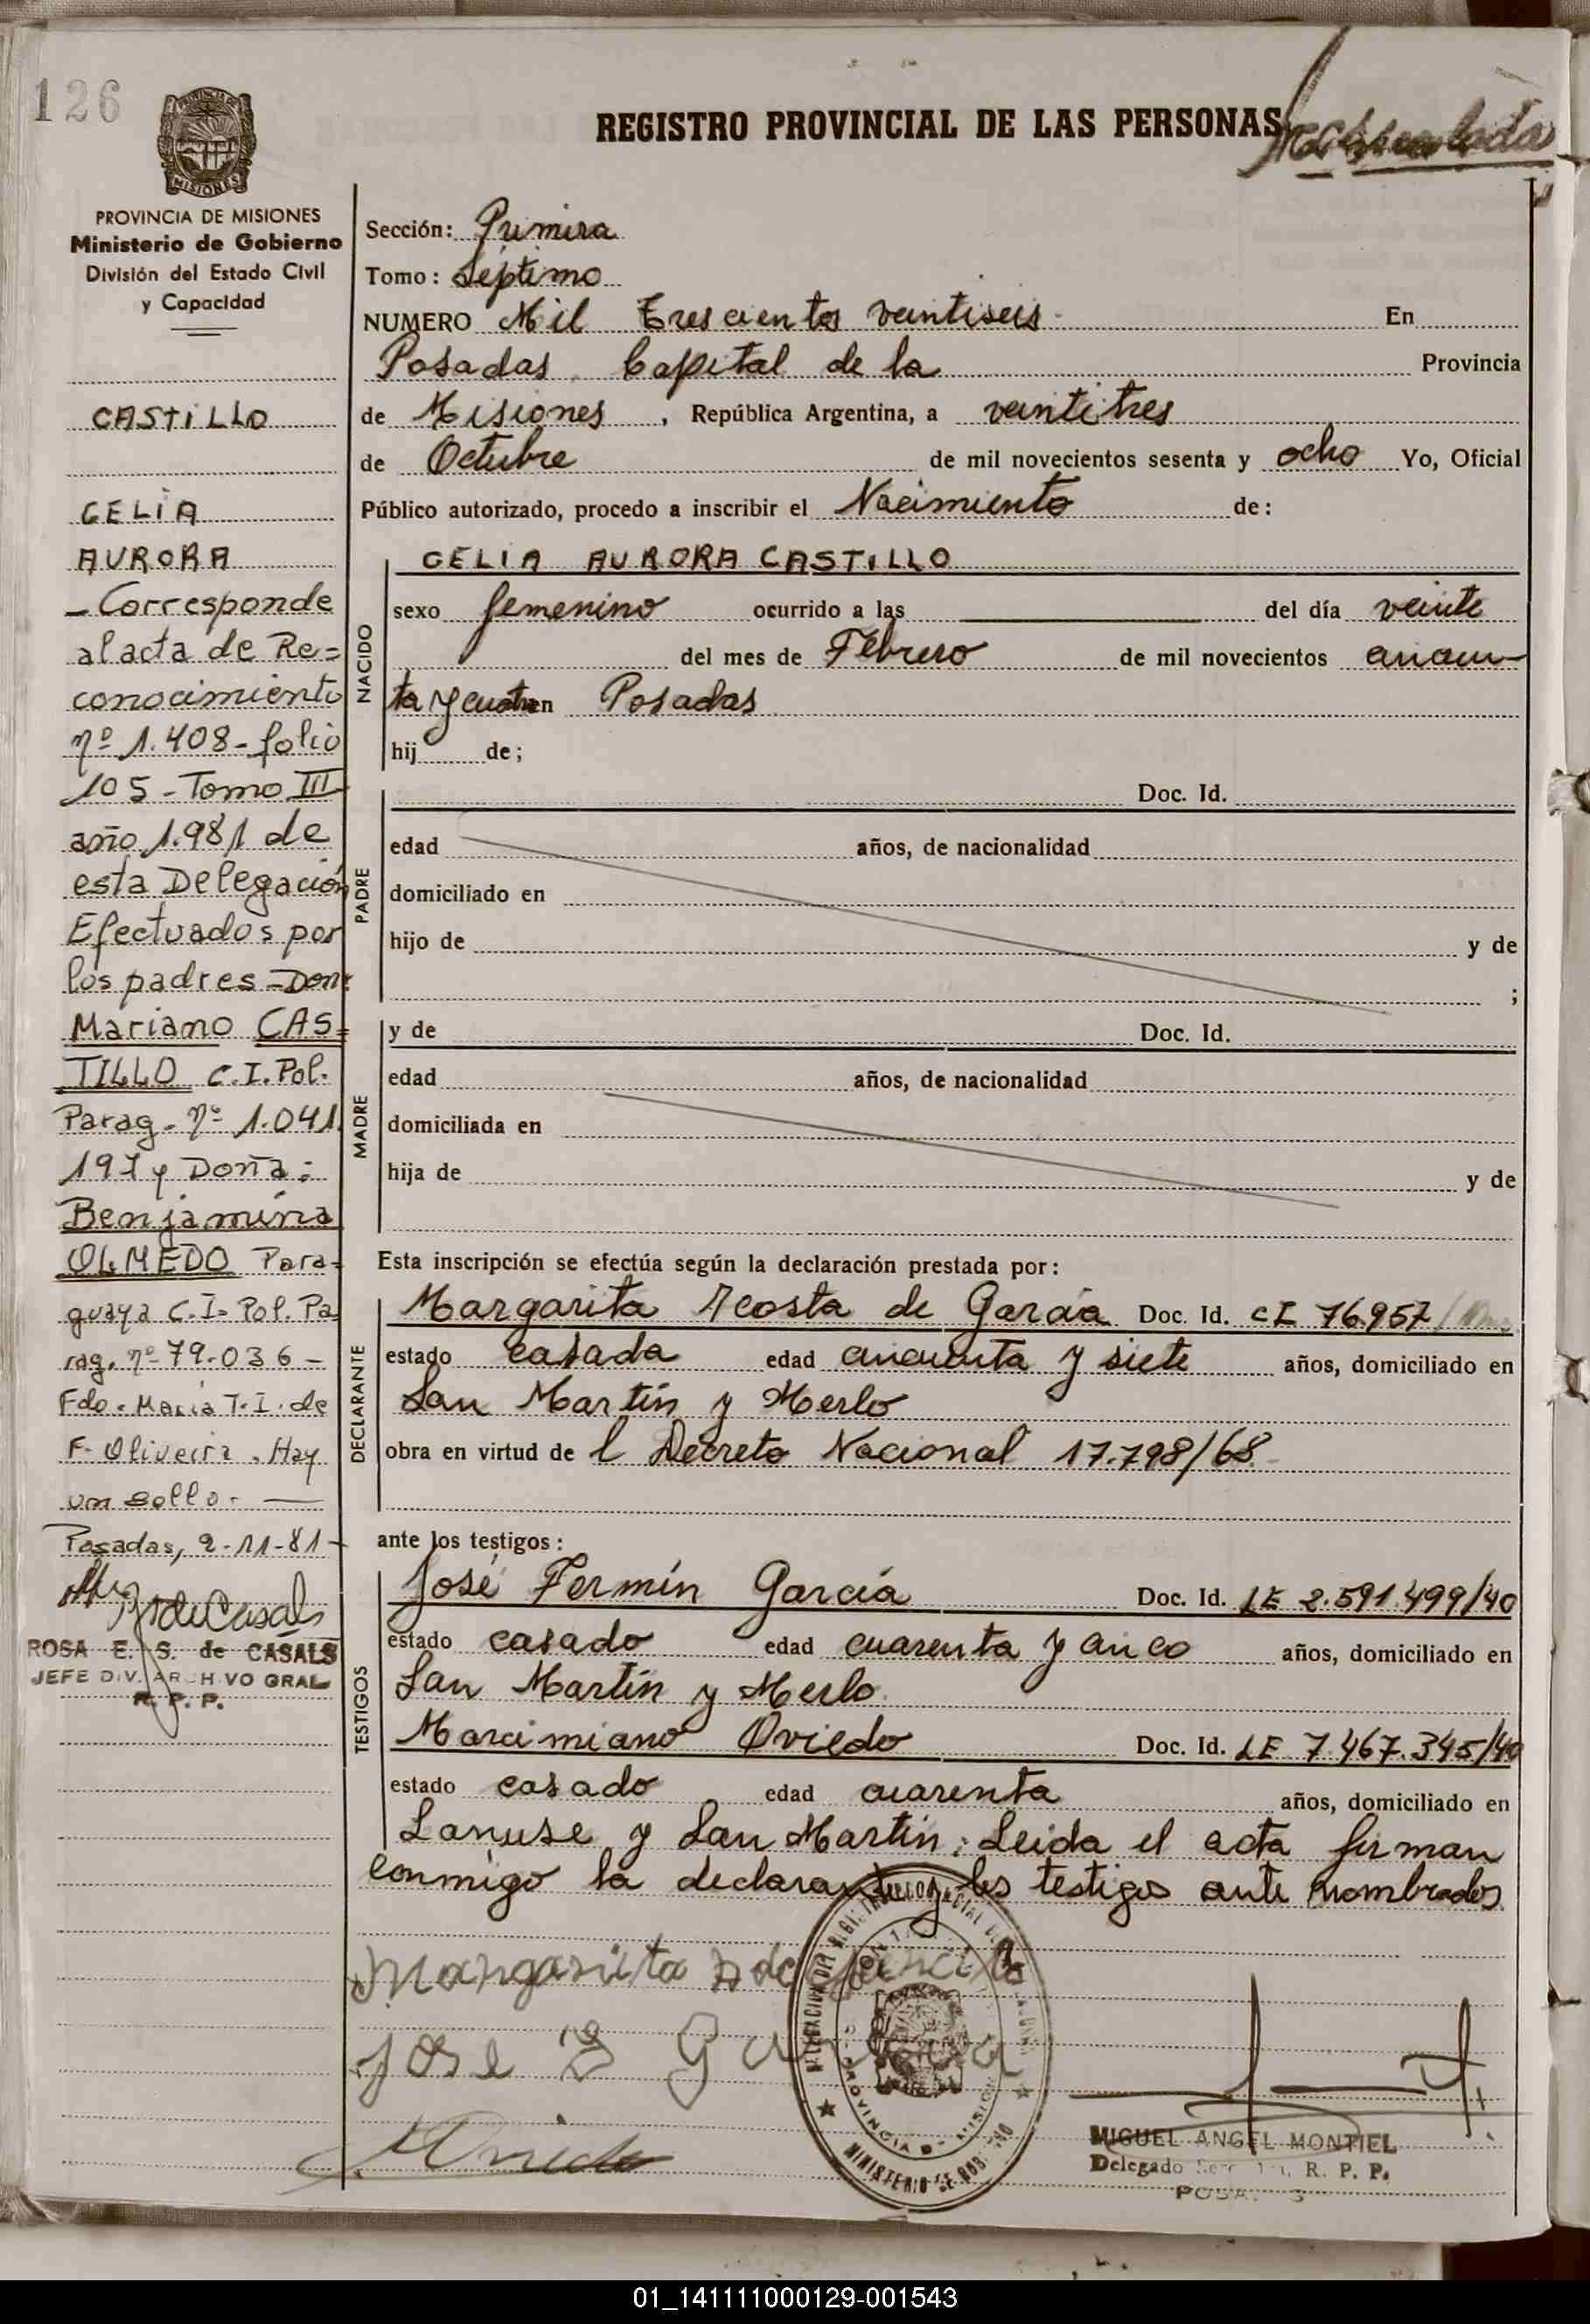 126
REGISTRO PROVINCIAL DE LAS PERSONAS
MISIONES
PROVINCIA DE MISIONES
Ministerio de Gobierno
División del Estado Civil
y Capacidad
CASTILLO
CELIA
AURORA
- Corresponde
al acta de Re=
conocimiento
nº 1.408 - folio
105 - Tomo III
año 1.981 de
esta Delegación
Efectuados por
los padres = Don:
Mariano CAS=
TILLO C.I. Pol.
Parag. nº 1.041.
197 y Doña:
Benjamina
OLMEDO Para-
guaya C.I. Pol. Pa
rag. nº 79.036 -
Fdo. María T. I. de
F. Oliveira . Hay
un sello. -
Posadas, 2-11-81-
ROSA E. S. de CASALS
JEFE DIV. ARCHIVO GRAL
R. P. P.
Sección: Primera
Tomo: Séptimo
NUMERO Mil Trescientos veintiseis - En
Posadas, Capital de la Provincia
de Misiones, República Argentina, a veintitres
de Octubre de mil novecientos sesenta y ocho Yo, Oficial
Público autorizado, procedo a inscribir el Nacimiento de:
NACIDO
CELIA AURORA CASTILLO
sexo femenino ocurrido a las del día veinte
del mes de Febrero de mil novecientos cincuen-
ta y cuatro en Posadas
hij de;
PADRE
Doc. Id.
edad años, de nacionalidad
domiciliado en
hijo de y de
;
MADRE
y de Doc. Id.
edad años, de nacionalidad
domiciliada en
hija de y de
Esta inscripción se efectúa según la declaración prestada por:
DECLARANTE
Margarita Acosta de García Doc. Id. CI 76.957/
estado casada edad cincuenta y siete años, domiciliado en
San Martín y Merlo
obra en virtud de l Decreto Nacional 17.798/68.-
ante los testigos:
TESTIGOS
José Fermín García Doc. Id. LE 2.591.499/40
estado casado edad cuarenta y cinco años, domiciliado en
San Martín y Merlo.
Marcimiano Oviedo Doc. Id. LE 7.467.345/40
estado casado edad cuarenta años, domiciliado en
Lanuse y San Martín; Leida el acta firman
conmigo la declarante y los testigos ante nombrados
Margarita A de García
Jose F Garcia
Oviedo
PROVINCIA DE MISIONES
MINISTERIO DE GOBIERNO
MIGUEL ANGEL MONTIEL
Delegado R. P. P.
01_141111000129-001543